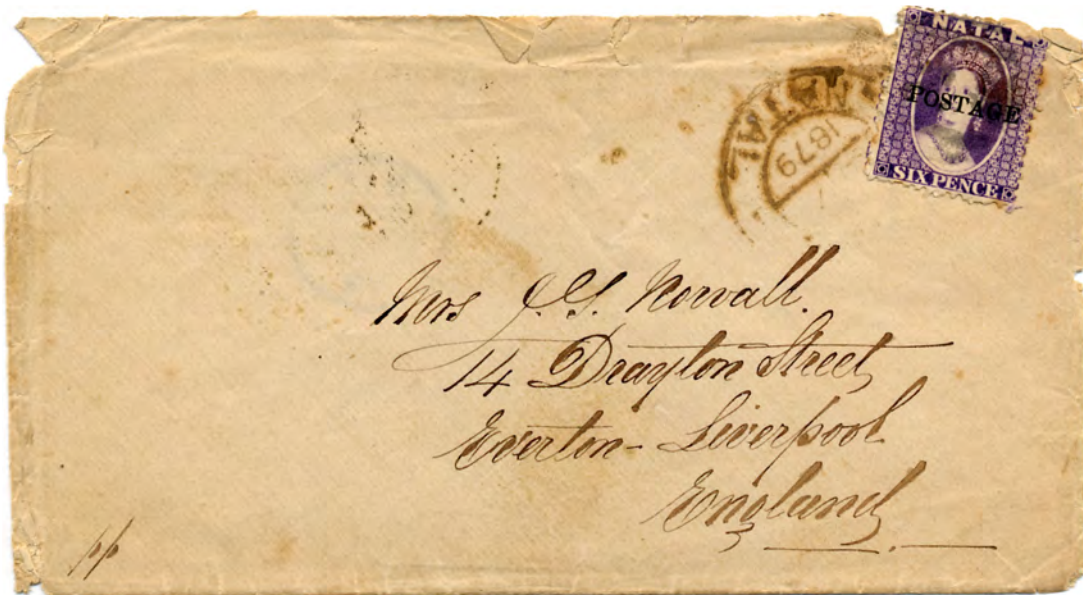 NATAL
POSTAGE
SIX PENCE
NATAL
1879
Mrs J. S. Norvall.
14 Drayton Street
Everton - Liverpool
England